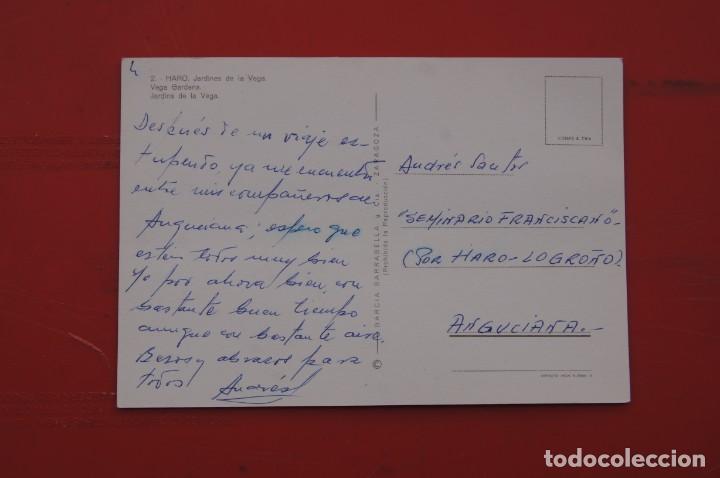 2. - HARO. Jardines de la Vega.
Vega Gardens.
Jardins de la Vega.
Después de un viaje es-
tupendo, ya me encuentro
entre mis compañeros de
Anguciana; espero que
estén todos muy bien
Yo por ahora bien, con
bastante buen tiempo
aunque con bastante aire.
Besos y abrazos para
todos Andrés
© GARCIA GARRABELLA y Cía. - ZARAGOZA
(Prohibida la Reproducción)
Andrés Santos
"SEMINARIO FRANCISCANO"-
(POR HARO-LOGROÑO).
ANGUCIANA.-
todocoleccion.net